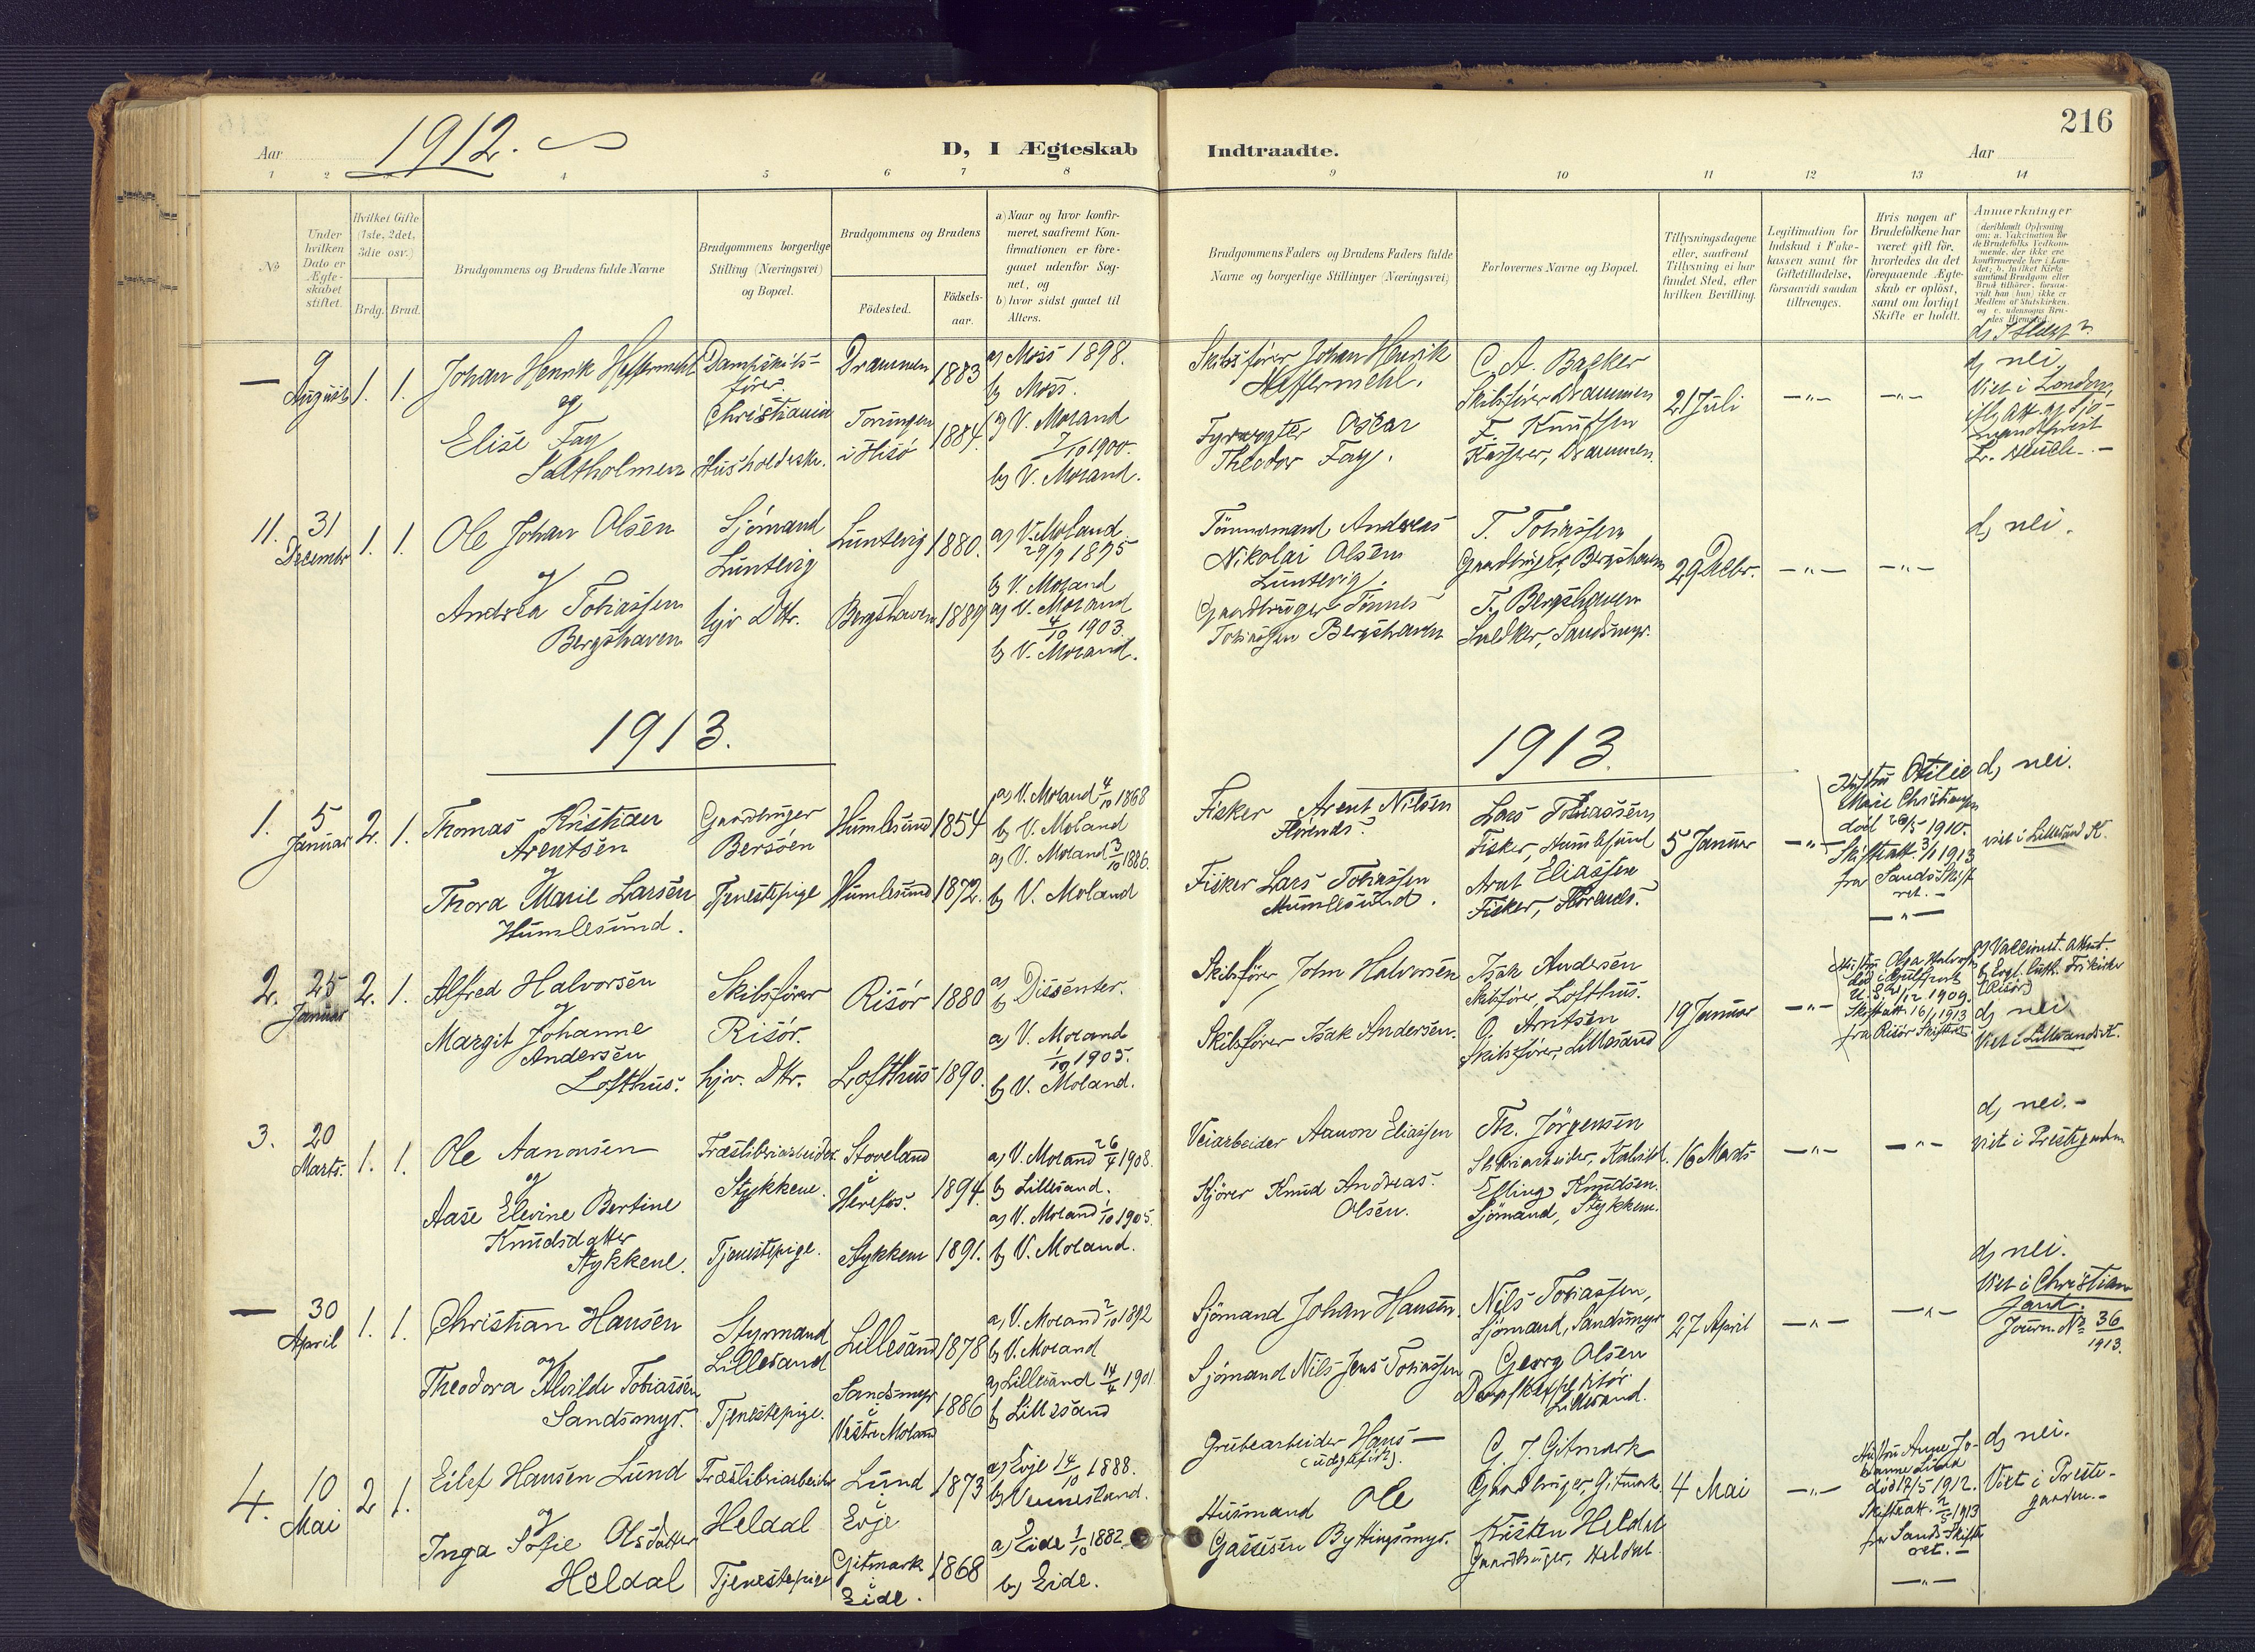 216
Aar 1912.
D, I Ægteskab Indtraadte.
Aar
1 2 3 4 5 6 7 8 9 10 11 12 13 14
No
Under hvilken Dato er Ægteskabet stiftet.
Hvilket Gifte (1ste, 2det, 3die osv.)
Brdg. Brud.
Brudgommens og Brudens fulde Navne
Brudgommens borgerlige Stilling (Næringsvei) og Bopæl.
Brudgommens og Brudens
Födested.
Födselsaar.
a) Naar og hvor konfirmeret, saafremt Konfirmationen er foregaaet udenfor Sognet, og
b) hvor sidst gaaet til Alters.
Brudgommens Faders og Brudens Faders fulde Navne og borgerlige Stillinger (Næringsvei)
Forlovernes Navne og Bopæl.
Tillysningsdagene eller, saafremt Tillysning ei har fundet Sted, efter hvilken Bevilling.
Legitimation for Indskud i Enkekassen samt for Giftetilladelse, forsaavidt saadan tiltrænges.
Hvis nogen af Brudefolkene har været gift för, hvorledes da det foregaaende Ægteskab er oplöst, samt om lovligt Skifte er holdt.
Anmerkninger
— 9 August 1. 1.
Johan Henrik Heffermehl
og
Elise Fay
Saltholmen
Dampskibsförer.
Christiania
Husholdersk.
Drammen 1883
Torungen i Hisö 1884.
a) Moss 1898.
b) Moss.
a) V. Moland
7/10 1900.
b) V. Moland.
Skibsförer Johan Henrik
Heffermehl.
Fyrvogter Oscar
Theodor Fay.
C. A. Backer
Skibsförer Drammen
F. Knutsen
Kasserer, Drammen.
21 Juli
—"— —"—
d) nei.
Viet i London,
11. 31 December 1. 1.
Ole Johan Olsen
og
Andrea Tobiassen
Bergshaven
Sjömand
Luntevig
hjv Dtr.
Luntevig 1880.
Bergshaven 1889
a) V. Moland
29/9 1895
b) V. Moland
a) V. Moland
4/10 1903.
b) V. Moland.
Tömmermand Andreas
Nikolai Olsen
Luntevig.
Gaardbruger Tönnes
Tobiassen Bergshaven
T. Tobiassen
Gaardbruger, Bergshaven
T. Bergshaven
Snedker, Sandsmyr.
29 Decbr.
—"— —"—
d) nei.
1913.
1913.
1. 5 Januar 2. 1.
Thomas Kristian
Arentsen
og
Thora Marie Larsen
Humlesund.
Gaardbruger
Bersöen
Tjenestepige
Humlesund 1854
Humlesund 1872.
a) V. Moland 4/10 1868
b) V. Moland
a) V. Moland 3/10 1886.
b) V. Moland
Fisker Arent Nilsen
Fisker Lars Tobiassen
Humlesund.
Lars Tobiassen
Fisker, Humlesund
Arnt Eliassen
Fisker,
5 Januar
—"—
Hustru Otilie
Marie Christiansen
död 20/5 1910.
Skifteatt. 3/1 1913
fra Sands Skifteret. —
—"—
d) nei.
viet i Lillesand K.
2. 25 Januar 2. 1.
Alfred Halvorsen
og
Margit Johanne
Andersen
Lofthus.
Skibsförer
Risör.
hjv. Dtr.
Risör 1880
Lofthus 1890.
a) b) Dissenter.
a) V. Moland
1/10 1905.
b) V. Moland.
Skibsförer John Halvorsen
Skibsförer Isak Andersen.
Isak Andersen
Skibsförer, Lofthus.
O. Arntsen
Skibsförer, Lillesand
19 Januar
—"—
Hustru Olga Halvorsen
1909.
Skifteatt. 16/1 1913
fra Risör Skifteret
a) Vaccinat. attest.
b) Evgl. luth. Frikirke
(Risör)
d) nei
Viet i Lillesands K.
3. 20 Marts. 1. 1.
Ole Aanonsen
og
Aase Elevine Bertine
Knudsdatter
Stykkene.
Træsliberiarbeider
Stykkene.
Tjenestepige.
Stoveland
i
Herefos. 1894
Stykkene 1891.
a) V. Moland 26/4 1908.
b) Lillesand.
a) V. Moland 1/10 1905.
b) V. Moland.
Veiarbeider Aanon Eliassen
Kjörer Knud Andreas
Olsen.
Th. Jörgensen
Sliberiarbeider,
Elling Knudsen.
Sjömand, Stykkene.
16 Marts
—"— —"—
d) nei. —
viet i Prestegaarden
— 30 April 1. 1.
Christian Hansen
og
Theodora Alvilde Tobiassen
Sandsmyr.
Styrmand
Lillesand
Tjenestepige.
Lillesand 1878
Sandsmyr
i
Vestre Moland 1886
a) V. Moland 2/10 1892
b) V. Moland
a) Lillesand 14/4 1901
b) Lillesand
Sjömand Johan Hansen.
Sjömand Nils Jens Tobiassen
Nils Tobiassen,
Sjömand, Sandsmyr
Georg Olsen
Lillesand.
27 April
—"— —"—
d) nei.
Viet i Christiansand.
Journ. No 36/1913.
4. 10 Mai 2 1.
Eilef Hansen Lund
og
Inga Sofie Olsdatter
Heldal
Træsliberiarbeider
Heldal
Tjenestepige
Lund
i
Evje 1873
Gitmark
i
Eide. 1868
a) Evje 14/10 1888.
b) Vennesland.
a) Eide 1/10 1882.
b) Eide.
Grubearbeider Hans —
(udgfört).
Husmand Ole
Gassesen Byttingsmyr.
G. J. Gitmark
Gaardbruger, Gitmark.
Kristen Heldal
Gaardbruger, Heldal.
4 Mai
—"—
Hustru Anne Johanne Lund
död 17/5 1912.
Skifteatt. 2/5 1913
fra Sands Skifteret. —
—"—
d) nei.
Viet i Prestegaarden. —